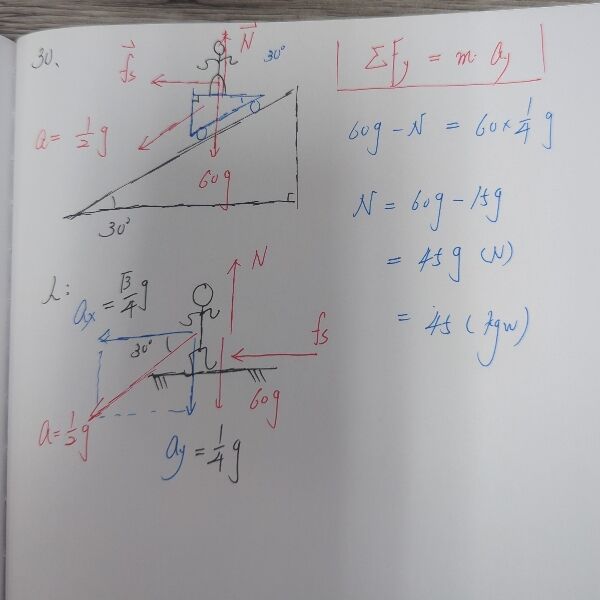 30.
fs
N
30°
a = 1/2 g
60g
30°
ΣFy = m · ay
60g - N = 60 × 1/4 g
N = 60g - 15g
= 45g (N)
= 45 (kgw)
人:
ax = √3/4 g
N
30°
fs
60g
a = 1/2 g
ay = 1/4 g